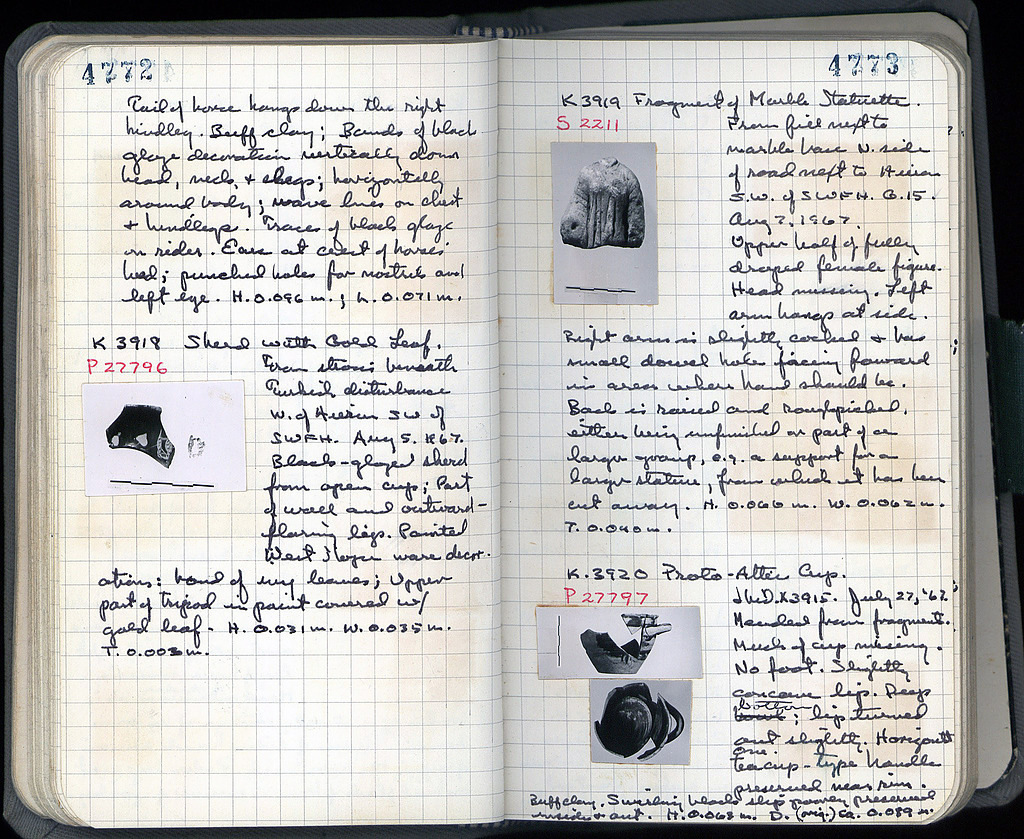 4772
Tail of horse hangs down the right
hindleg. Buff clay; Bands of black
glaze decoration vertically down
head, neck, + legs; horizontally
around body; wave lines on chest
+ hindlegs. Traces of black glaze
on rider. Ears at crest of horse's
head; punched holes for nostrils and
left eye. H. 0.096 m.; L. 0.071 m.
K 3918 Sherd with Gold Leaf.
P 27796
From strosis beneath
Turkish disturbance
W. of Heroon SW of
SWFH. Aug 5. 1967.
Black-glazed sherd
from open cup; Part
of wall and outward-
flaring lip. Painted
West Slope ware decor-
ations: band of ivy leaves; upper
part of tripod in paint covered w/
gold leaf. H. 0.031 m. W. 0.035 m.
T. 0.003 m.
4773
K 3919 Fragment of Marble Statuette.
S 2211
From fill next to
marble base N. side
of road next to
S.W. of SWFH. G.15.
Aug 7, 1967.
Upper half of fully
draped female figure.
Head missing. Left
arm hangs at side.
Right arm is slightly cocked + has
small dowel hole facing foward
in area where hand should be.
Back is raised and roughpicked,
either being unfinished or part of a
larger group, e.g. a support for a
larger statue, from which it has been
cut away. H. 0.066 m. W. 0.062 m.
T. 0.040 m.
K. 3920 Proto-Attic Cup.
P 27797
K3915. July 27, '67.
Mended from fragment.
Much of cup missing.
No foot. Slightly
concave lip. Deep
bottom
bowl; lip turned
out slightly. Horizontal
one.
teacup-type handle
preserved near rim.
Buff clay. Swirling black slip poorly preserved
inside + out. H. 0.068 m. D. (orig.) ca. 0.089 m.